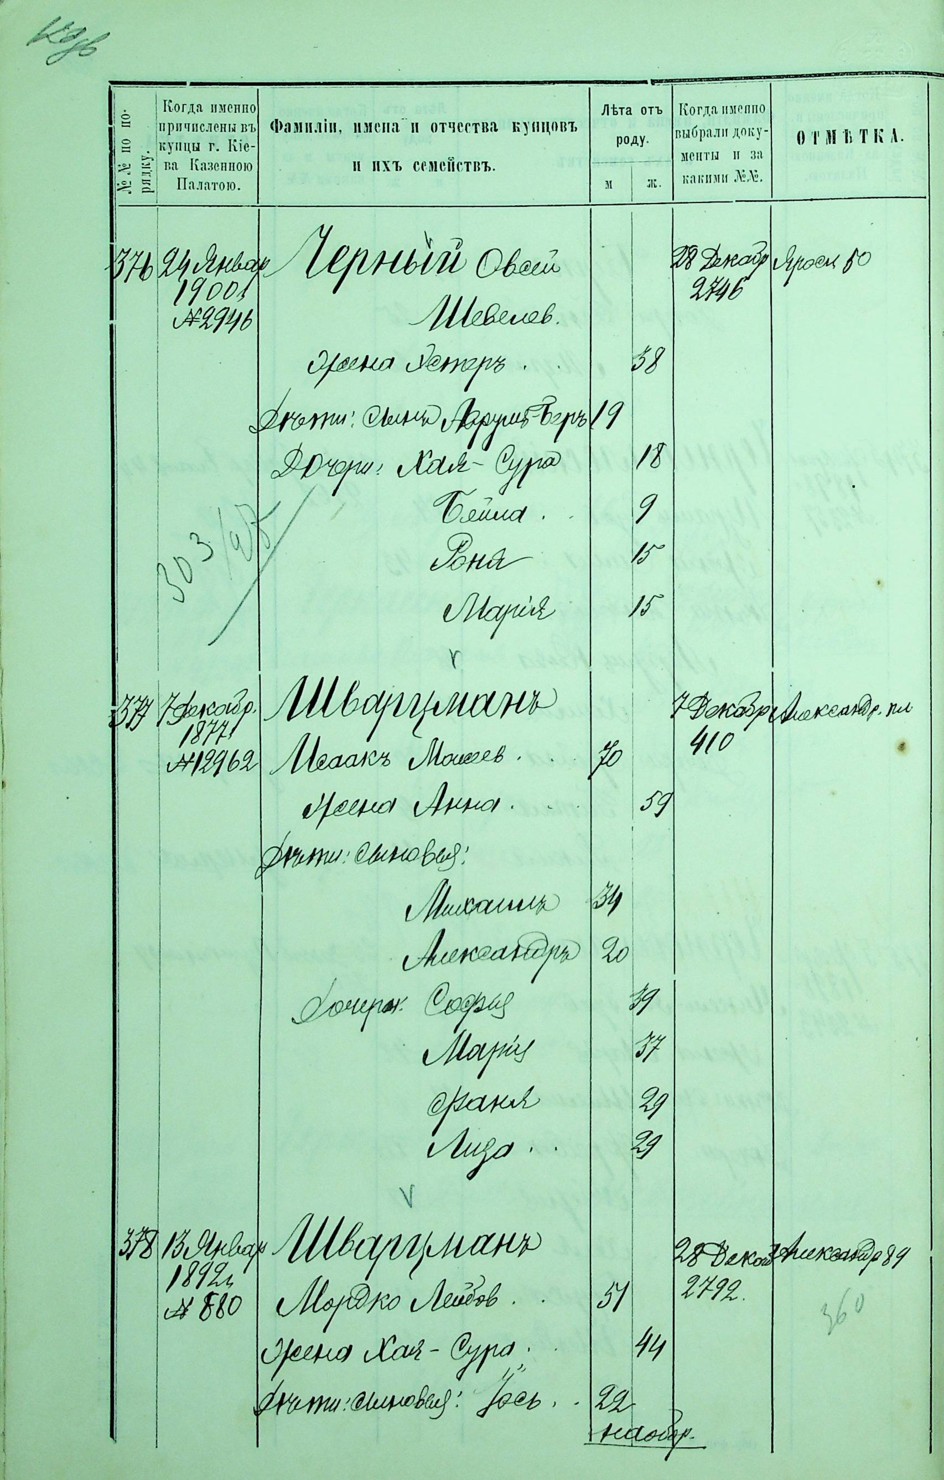 №№ по по-
рядку.
Когда именно
причислены въ
купцы г. Кіе-
ва Казенною
Палатою.
Фамиліи, имена и отчества купцовъ
и ихъ семействъ.
Лѣта отъ
роду.
м ж.
Когда именно
выбрали доку-
менты и за
какими №№.
ОТМѢТКА.
376 24 Январ Черный Овсей 28 Декабр Яросл 50
1900 г Шевелев. 2746
№2946
жена Эстеръ 38
Дѣти: сынъ Берть 19
Дочери: Хая-Сура 18
Бейла 9
Роня 15
303
Марія 15
377 7 Декабр. Шварцманъ 7 Декабр Александр. пл
1877 410
№12962 Исаакъ Мошев 70
жена Анна 59
Дѣти: сыновья:
Михаилъ 34
Александръ 20
Дочери: Софія 39
Марія 37
Фаня 29
Лиза 29
378 13 Январ Шварцманъ 28 Декаб Александр 89
1892 г 2792.
№ 880 Мордко Лейбов 51
360
жена Хая-Сура 44
Дѣти: сыновья: Іось 22
на обор.